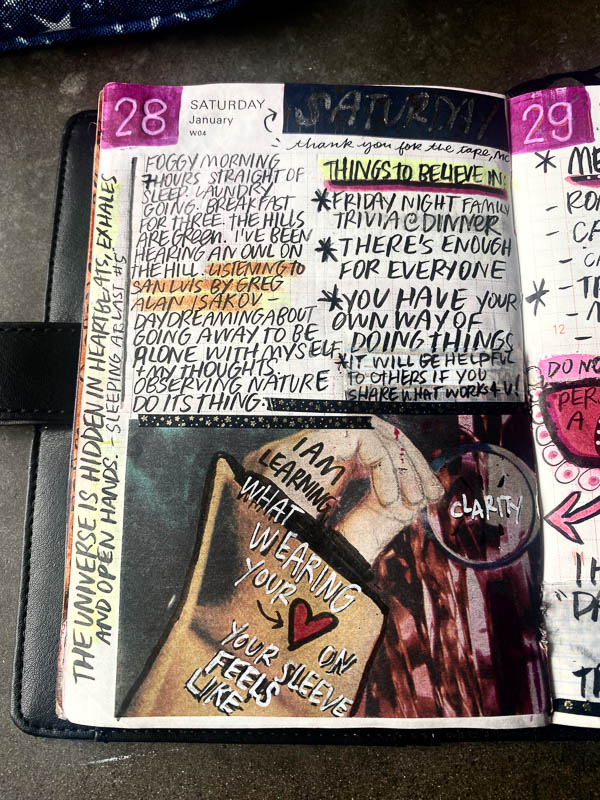 28
SATURDAY
January
W04
SATURDAY
thank you for the tape, MC
FOGGY MORNING
7 HOURS STRAIGHT OF
SLEEP. LAUNDRY
GOING. BREAKFAST
FOR THREE. THE HILLS
ARE GREEN. I'VE BEEN
HEARING AN OWL ON
THE HILL. LISTENING TO
SAN LUIS BY GREG
ALAN ISAKOV -
DAYDREAMING ABOUT
GOING AWAY TO BE
ALONE WITH MYSELF
+ MY THOUGHTS.
OBSERVING NATURE
DO ITS THING.
THINGS TO BELIEVE IN:
*FRIDAY NIGHT FAMILY
TRIVIA @ DINNER
*THERE'S ENOUGH
FOR EVERYONE
*YOU HAVE YOUR
OWN WAY OF
DOING THINGS
*IT WILL BE HELPFUL
TO OTHERS IF YOU
SHARE WHAT WORKS 4 U!
THE UNIVERSE IS HIDDEN IN HEARTBEATS, EXHALES
AND OPEN HANDS. - SLEEPING AT LAST #5
I AM
LEARNING
WHAT
WEARING
YOUR
ON
YOUR SLEEVE
FEELS
LIKE
CLARITY
29
* ME
- RO
- CA
- CA
* - TR
12
DO NO
PER
A
I H
"DA
TR